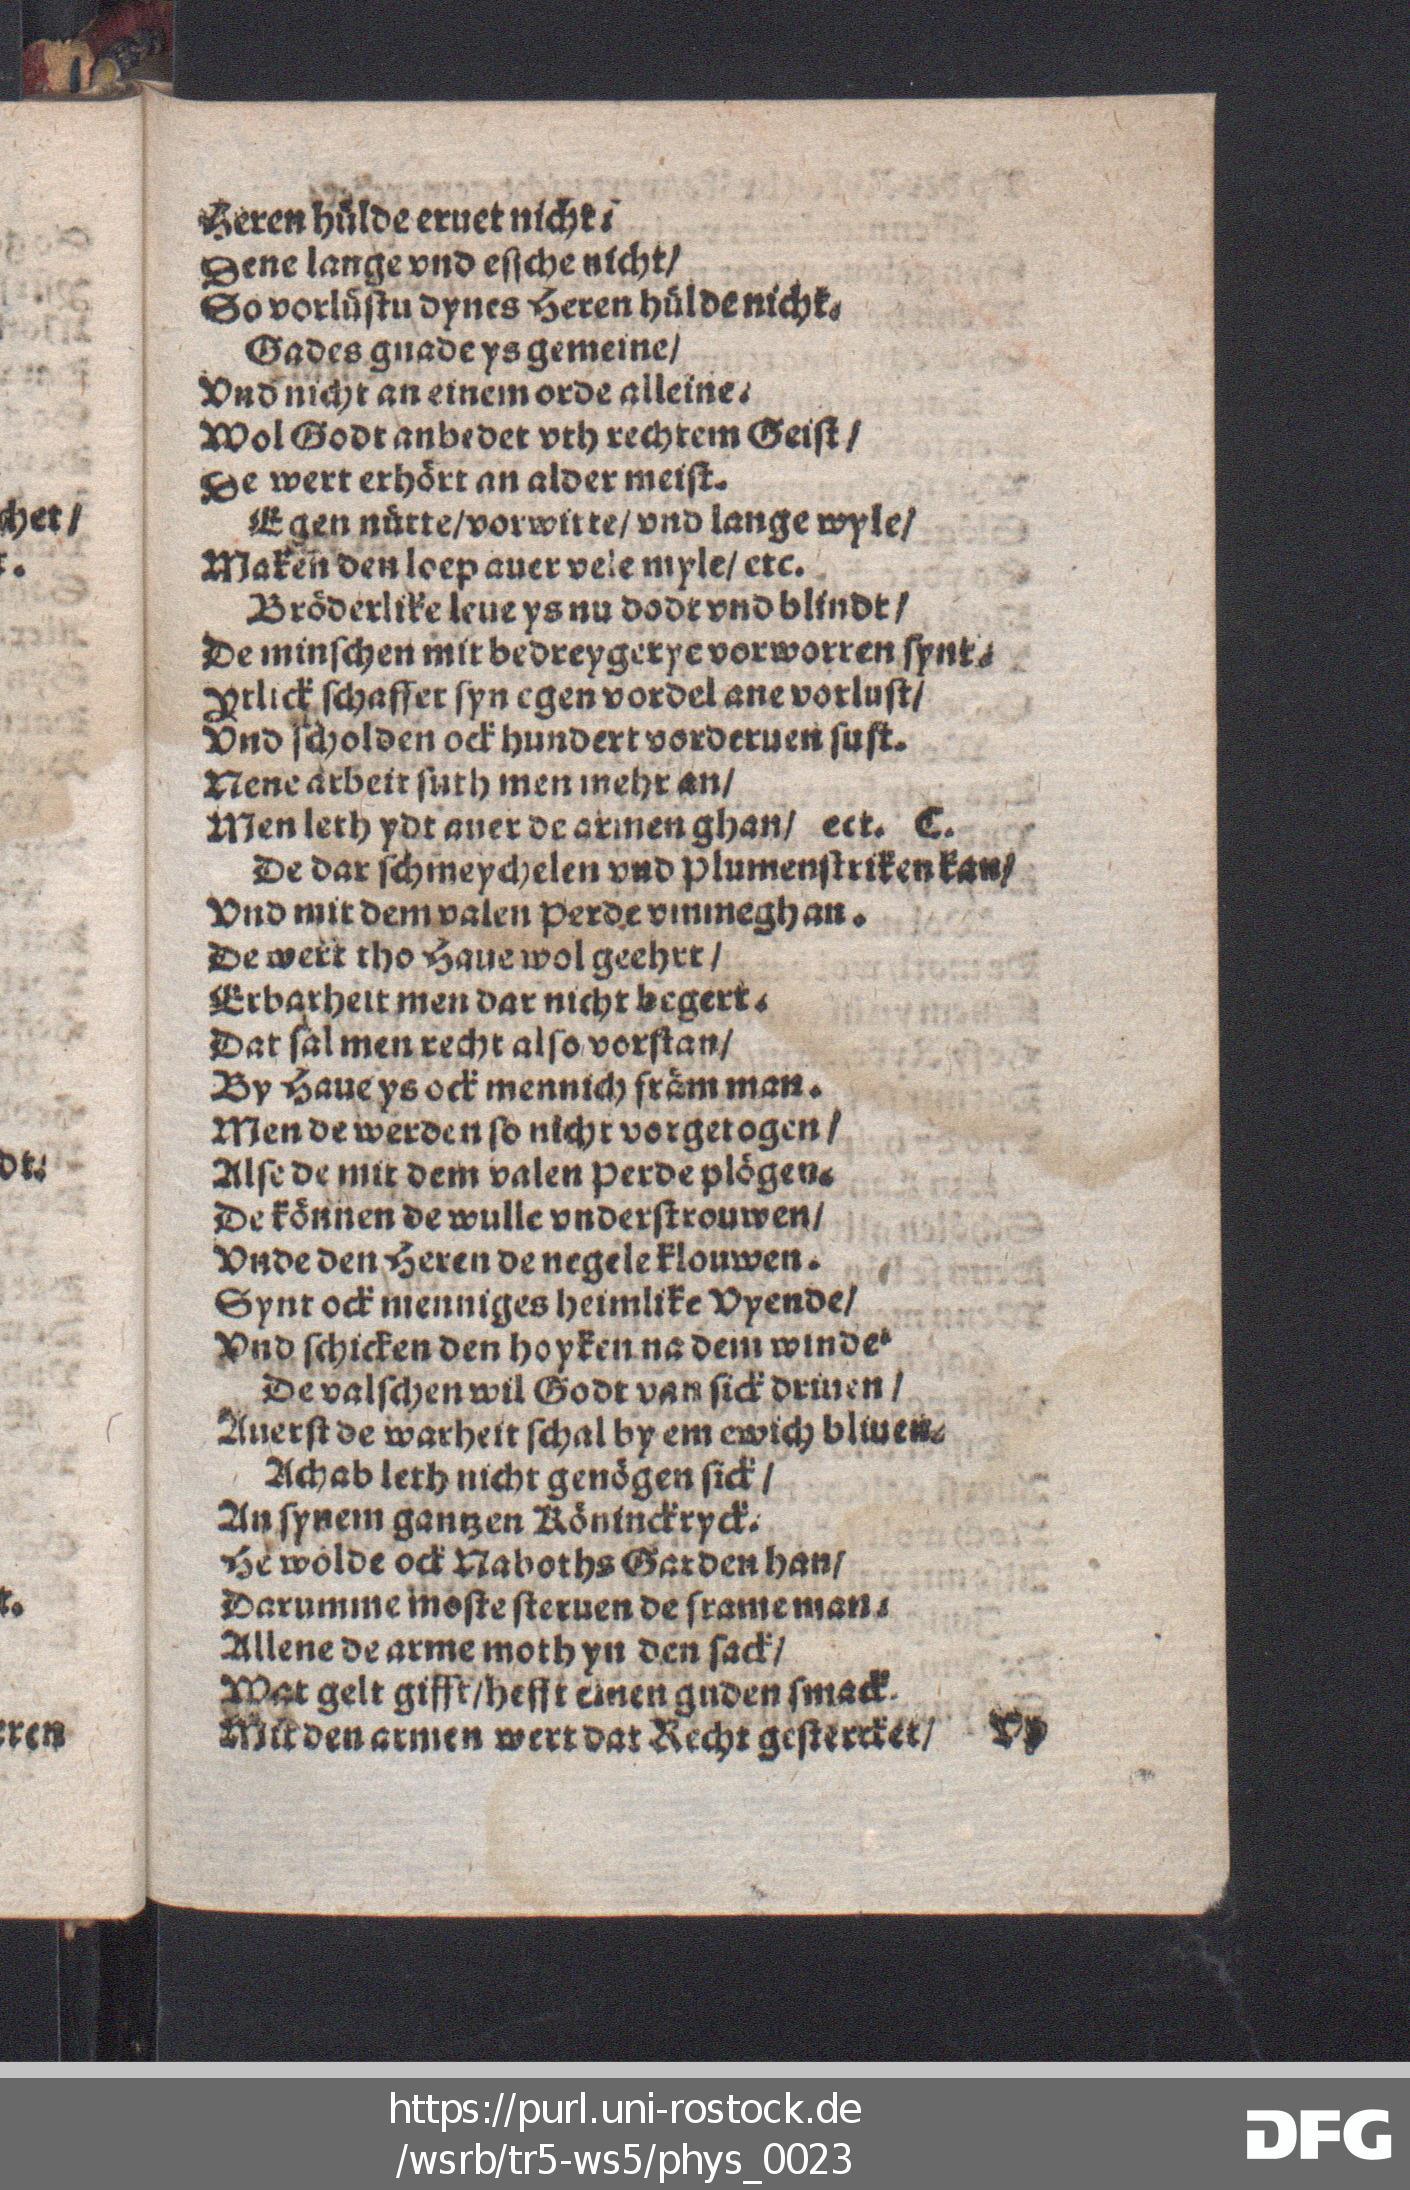 Heren hülde eruet nicht.
Dene lange vnd essche nicht/
So vorlüstu dynes Heren hülde nicht.
Gades gnade ys gemeine/
Vnd nicht an einem orde alleine.
Wol Godt anbedet vth rechtem Geist/
De wert erhört an alder meist.
Egen nütte/vorwitte/vnd lange wyle/
Maken den loep auer vele myle/ etc.
Bröderlike leue ys nu dodt vnd blindt/
De minschen mit bedreygerye vorworren synt.
Ytlick schaffet syn egen vordel ane vorlust/
Vnd scholden ock hundert vorderuen sust.
Nene arbeit süth men mehr an/
Men leth ydt auer de armen ghan/ ect. C.
De dar schmeychelen vnd plumenstriken kan/
Vnd mit dem valen perde vmmeghan.
De wert tho Haue wol geehrt/
Erbarheit men dar nicht begert.
Dat sal men recht also vorstan/
By Haue ys ock mennich främ man.
Men de werden so nicht vorgetogen/
Alse de mit dem valen perde plögen.
De können de wulle vnderstrouwen/
Vnde den Heren de negele klouwen.
Synt ock menniges heimlike Vyende/
Vnd schicken den hoyken na dem winde.
De valschen wil Godt van sick driuen/
Auerst de warheit schal by em ewich bliuen.
Achab leth nicht genögen sick/
An synem gantzen Köninckryck.
He wolde ock Naboths Garden han/
Darumme moste steruen de frame man.
Allene de arme moth yn den sack/
Wat gelt gifft/hefft einen guden smack.
Mit den armen wert dat Recht gestercket/ Vp
chet/
t.
dt.
t.
eren
https://purl.uni-rostock.de
/wsrb/tr5-ws5/phys_0023
DFG